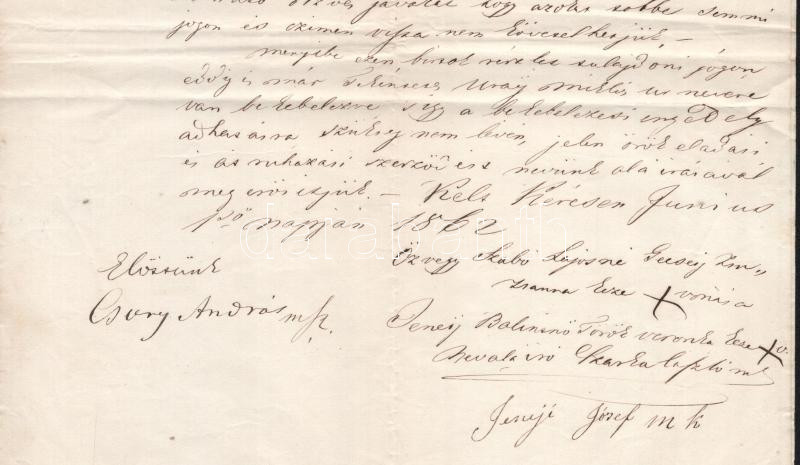 javát hogy azokat többe semmi
jogon és czimen vissza nem követelhetjük,–
menyibe ezen birtok részlet tulajdoni jogon
eddig is már Tekintetes Uray Miklós ur nevere
van be kebelezve s igy a be kebelezesi engedely
adhasásra szükség nem lévén, jelen örök eladási
és át ruházási szerződést nevünk alá irásával
meg erősitjük.– Kelt Kérésen Junius
1ső napján 1862
Előttünk
Csory András mk.
Özvegy Szabó Lajosné Gecsey Zu„
zsanna keze + vonása
Jeneij Bálintnő Török veronka keze + v.
Nevaláiró Szarka László mk
Jeneji Jósef mk
darabanth